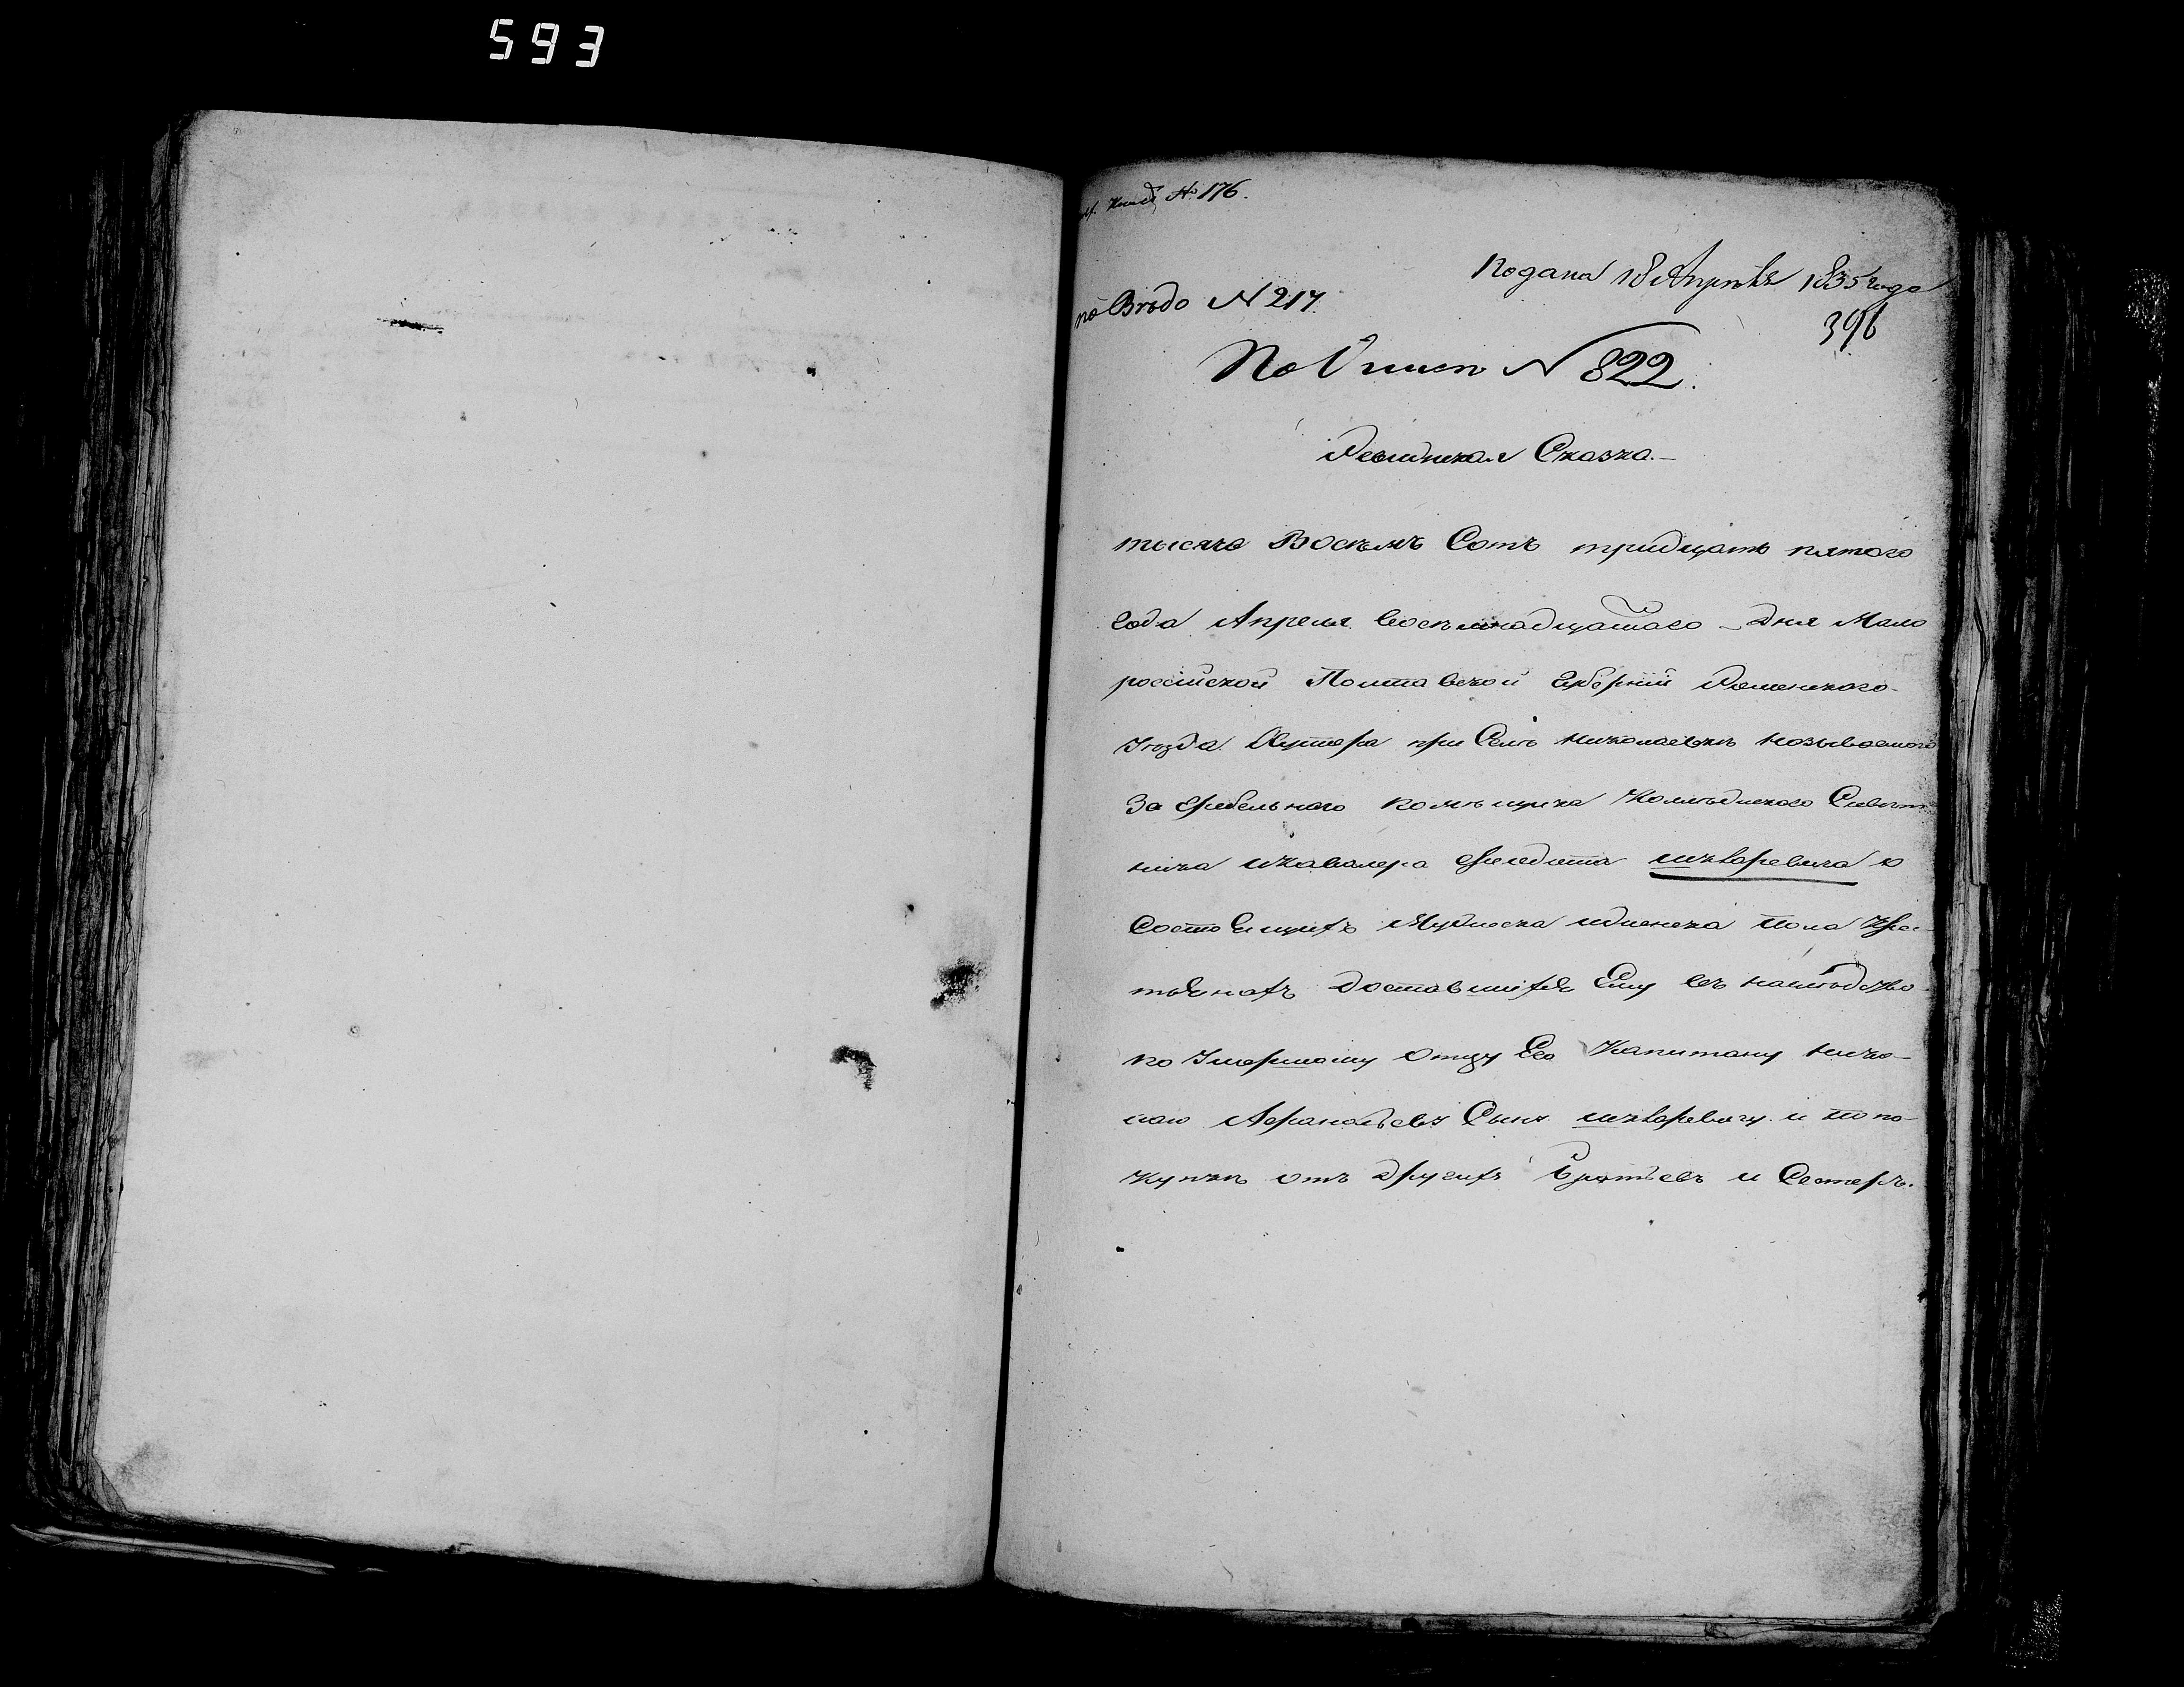 593
№ 176.
Подана 18 Апрѣля 1835 года
по Вѣдо № 217
396
По Описи № 822.
Ревизская Сказка.
тысяча Восемъ Сотъ тридцать пятого
года Апреля восемнадцатого дня Мало
россійской Полтавской Губерніи Роменского
Уезда Хутора при Селе Николаевке называемого
За Гребельного помещика Коллежского Совет
ника и Кавалера шкларевича о
Состоящихъ Мужеска и женска пола Крес
тьянахъ доставшихся Ему въ наследство
по Умершому Отцу Его Капитану Нико
лаю шкларевичу и по по
Купке отъ другихъ Братьевъ и Сестеръ.